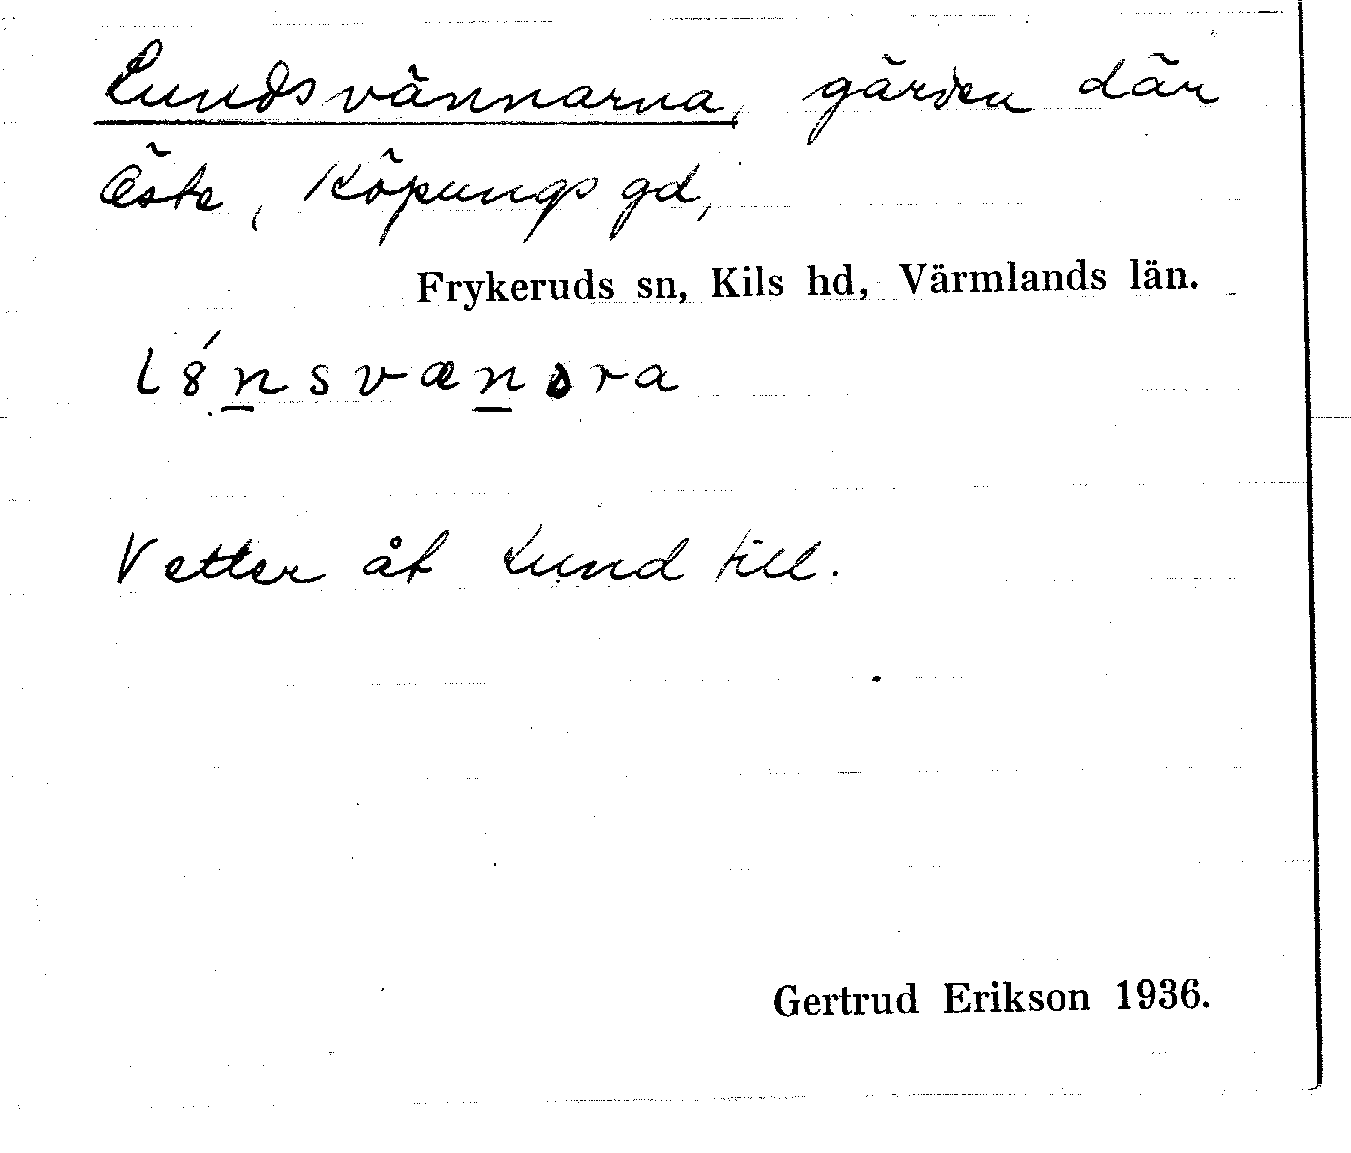 Lundsvännarna, gärden där
Öste, Köpungs gd,
Frykeruds sn, Kils hd, Värmlands län.
l8́n̲svæn̲ɔra
Vetter åt Lund till.
Gertrud Erikson 1936.